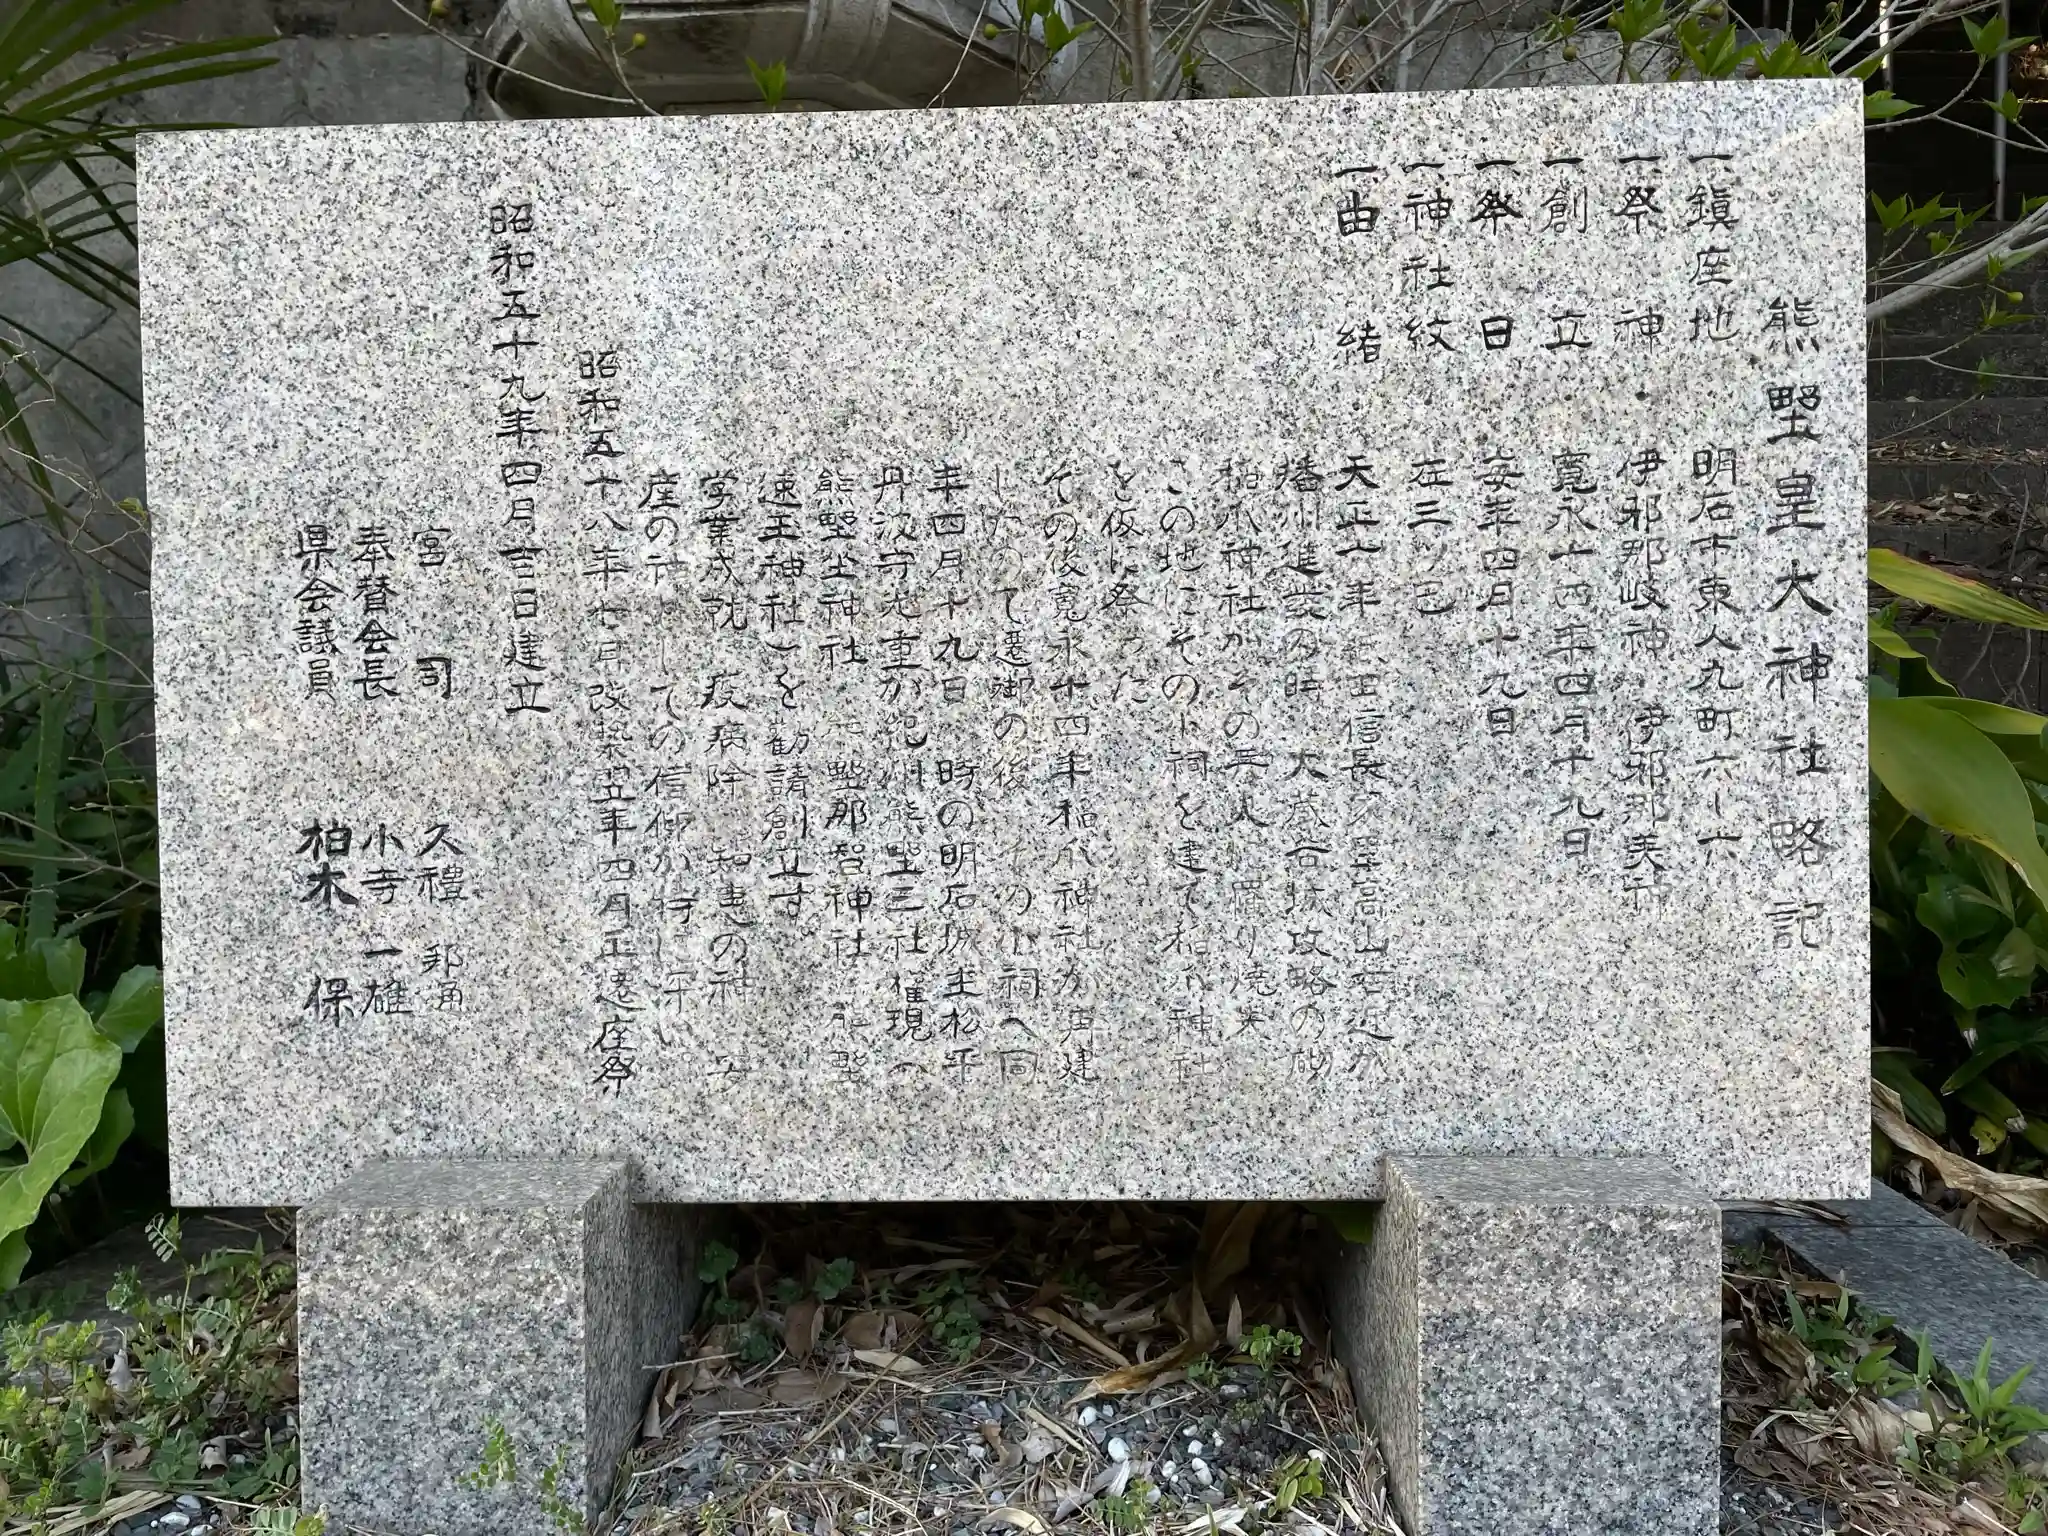 熊野皇大神社略記
一鎮座地 明石市東人丸町六ー六
一祭神・伊邪那岐神・伊邪那美神
一創立・寛永十四年四月十九日
一祭日・毎年四月十九日
一神社紋・左三ッ巴
一由緒・天正六年 織田信長の軍高山右近が
播州進發の時 大蔵谷城攻略の砌
稲爪神社がその兵火に罹り焼失
この地にその小祠を建て稲爪神社
を仮に祭った
その後寛永十四年稲爪神社が再建
したので遷御の後 その小祠へ同
年四月十九日 時の明石城主松平
丹波守光重が紀州熊野三社権現（
熊野坐神社 熊野那智神社 熊野
速玉神社）を勧請創立す。
学業成就 疫病除 知恵の神 安
座の社としての信仰が特に深い。
昭和五十八年七月改築翌年四月正遷座祭
昭和五十九年四月吉日建立
宮司 久禮 邦
奉賛会長 小寺一雄
県会議員 柏木 保